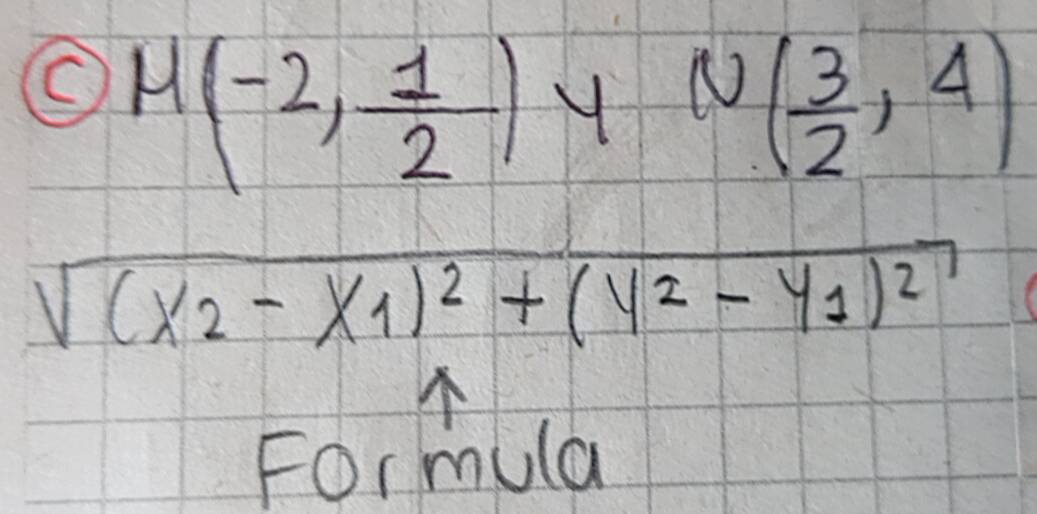 C M(-2, 1/2) y N(3/2, 4)
√(x2 - x1)² + (y2 - y1)²
↑
Formula